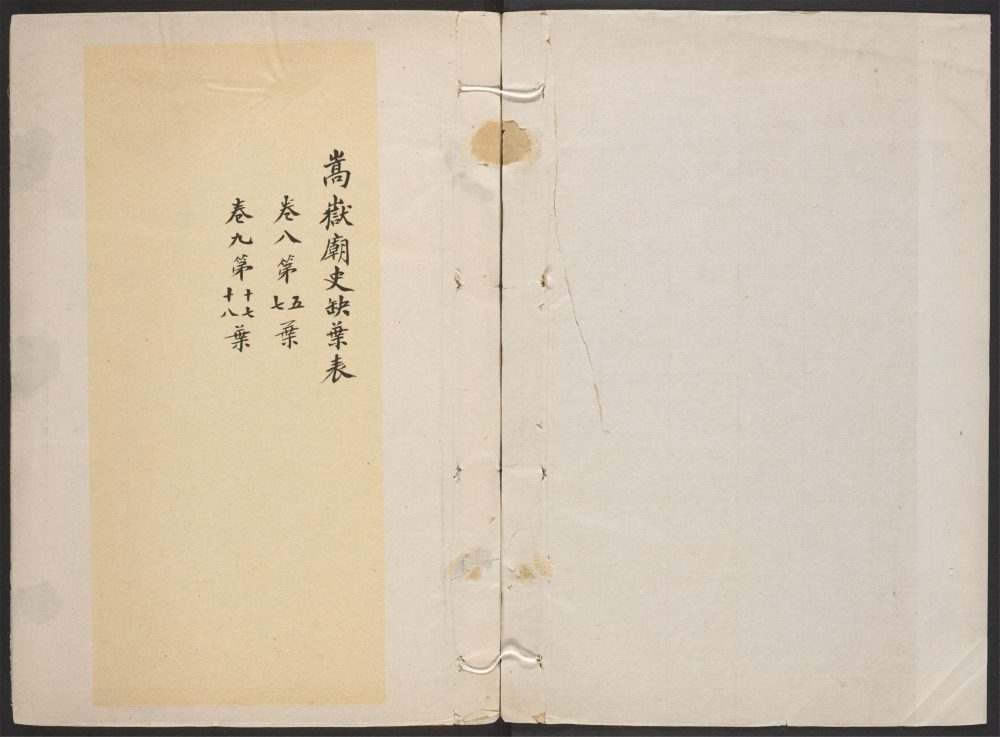 嵩嶽廟史缺葉表
卷八第五七葉
卷九第十七十八葉